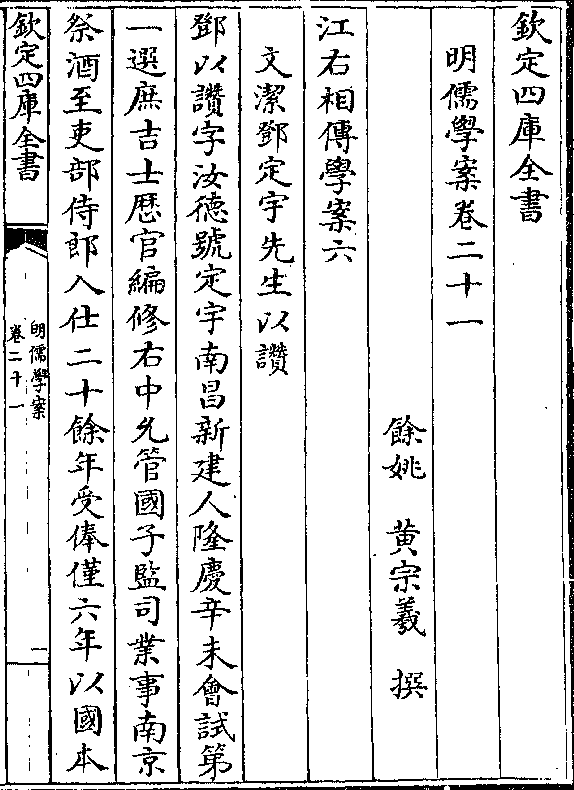 欽定四庫全書
明儒學案卷二十一
餘姚 黃宗羲 撰
江右相傳學案六
文潔鄧定宇先生以讚
鄧以讚字汝德號定宇南昌新建人隆慶辛未會試第
一選庶吉士歷官編修右中允管國子監司業事南京
祭酒至吏部侍郎入仕二十餘年受俸僅六年以國本
欽定四庫全書
明儒學案
卷二十一
一